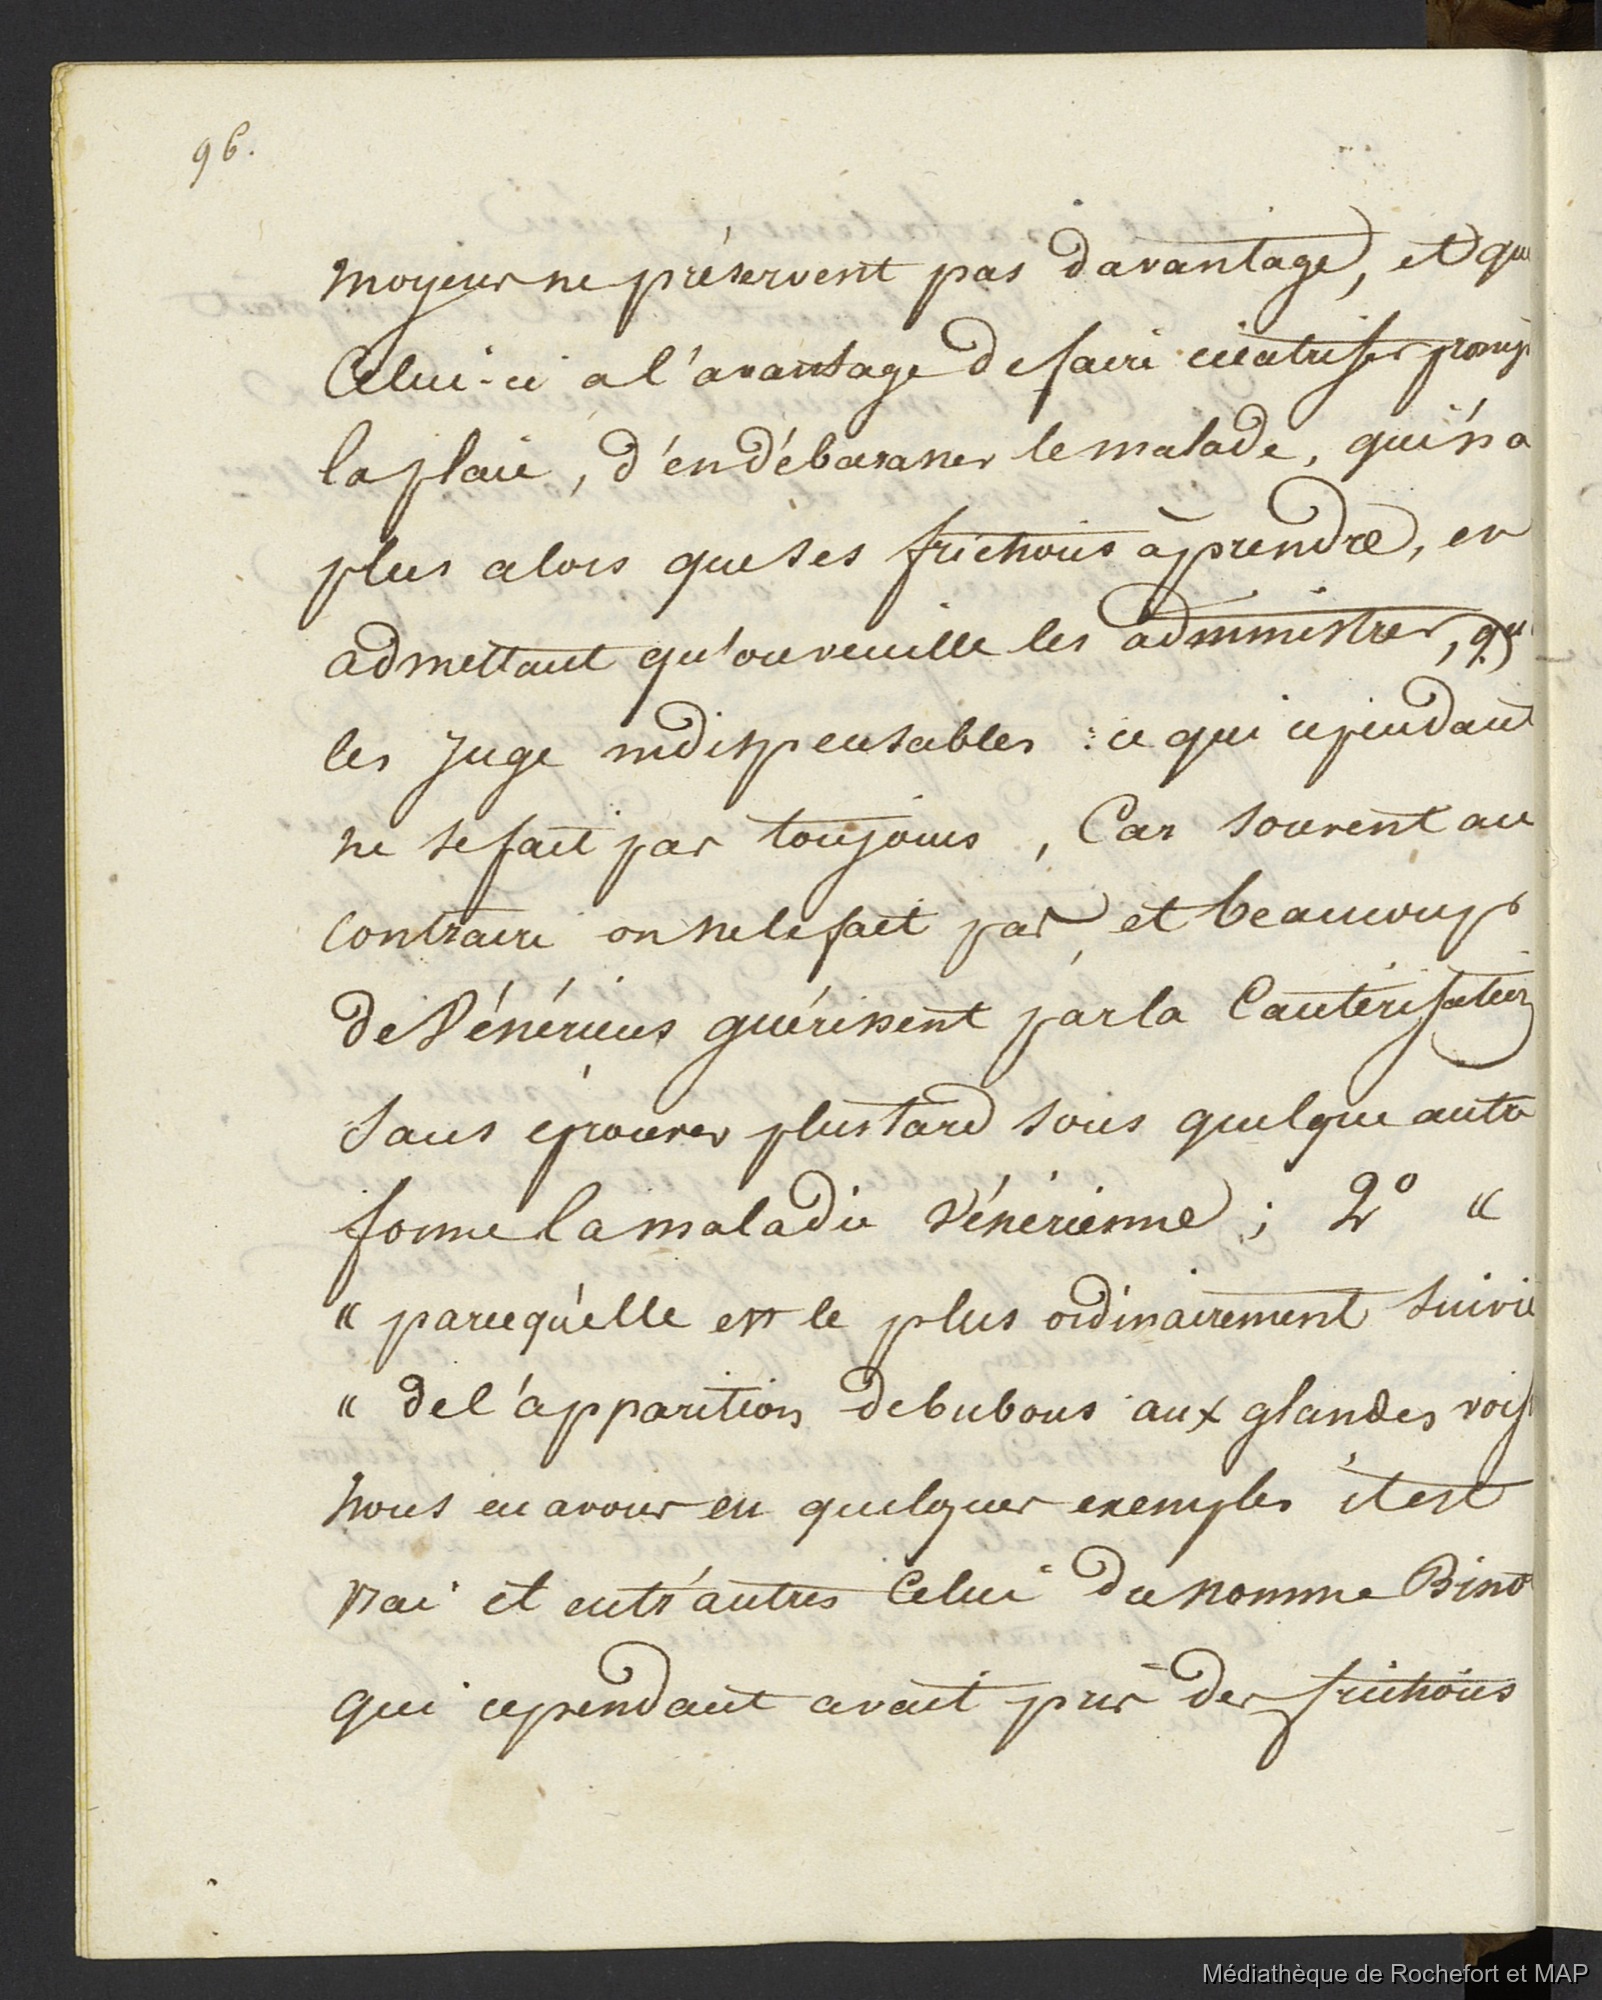 96.
moyens ne préservent pas davantage, et que
Celui-ci a l'avantage de faire cicatriser promp
la plaie, d'en débarasser le malade, qui n'a
plus alors que ses frictions à prendre, en
admettant qu'on veuille les administrer, qu'
les Juge indispensables : ce qui cependant
ne se fait pas toujours, Car souvent au
contraire on ne le fait pas, et beaucoup
de Vénériens guérissent par la Cautérisation
Sans éprouver plus tard sous quelque autre
forme la maladie Vénérienne ; 2º "
" parcequ'elle est le plus ordinairement suivie
" de l'apparition de bubons aux glandes vois
nous en avons eu quelques exemples il est
vrai et entr'autres Celui du nommé Bino
qui cependant avait pris des frictions
Médiathèque de Rochefort et MAP